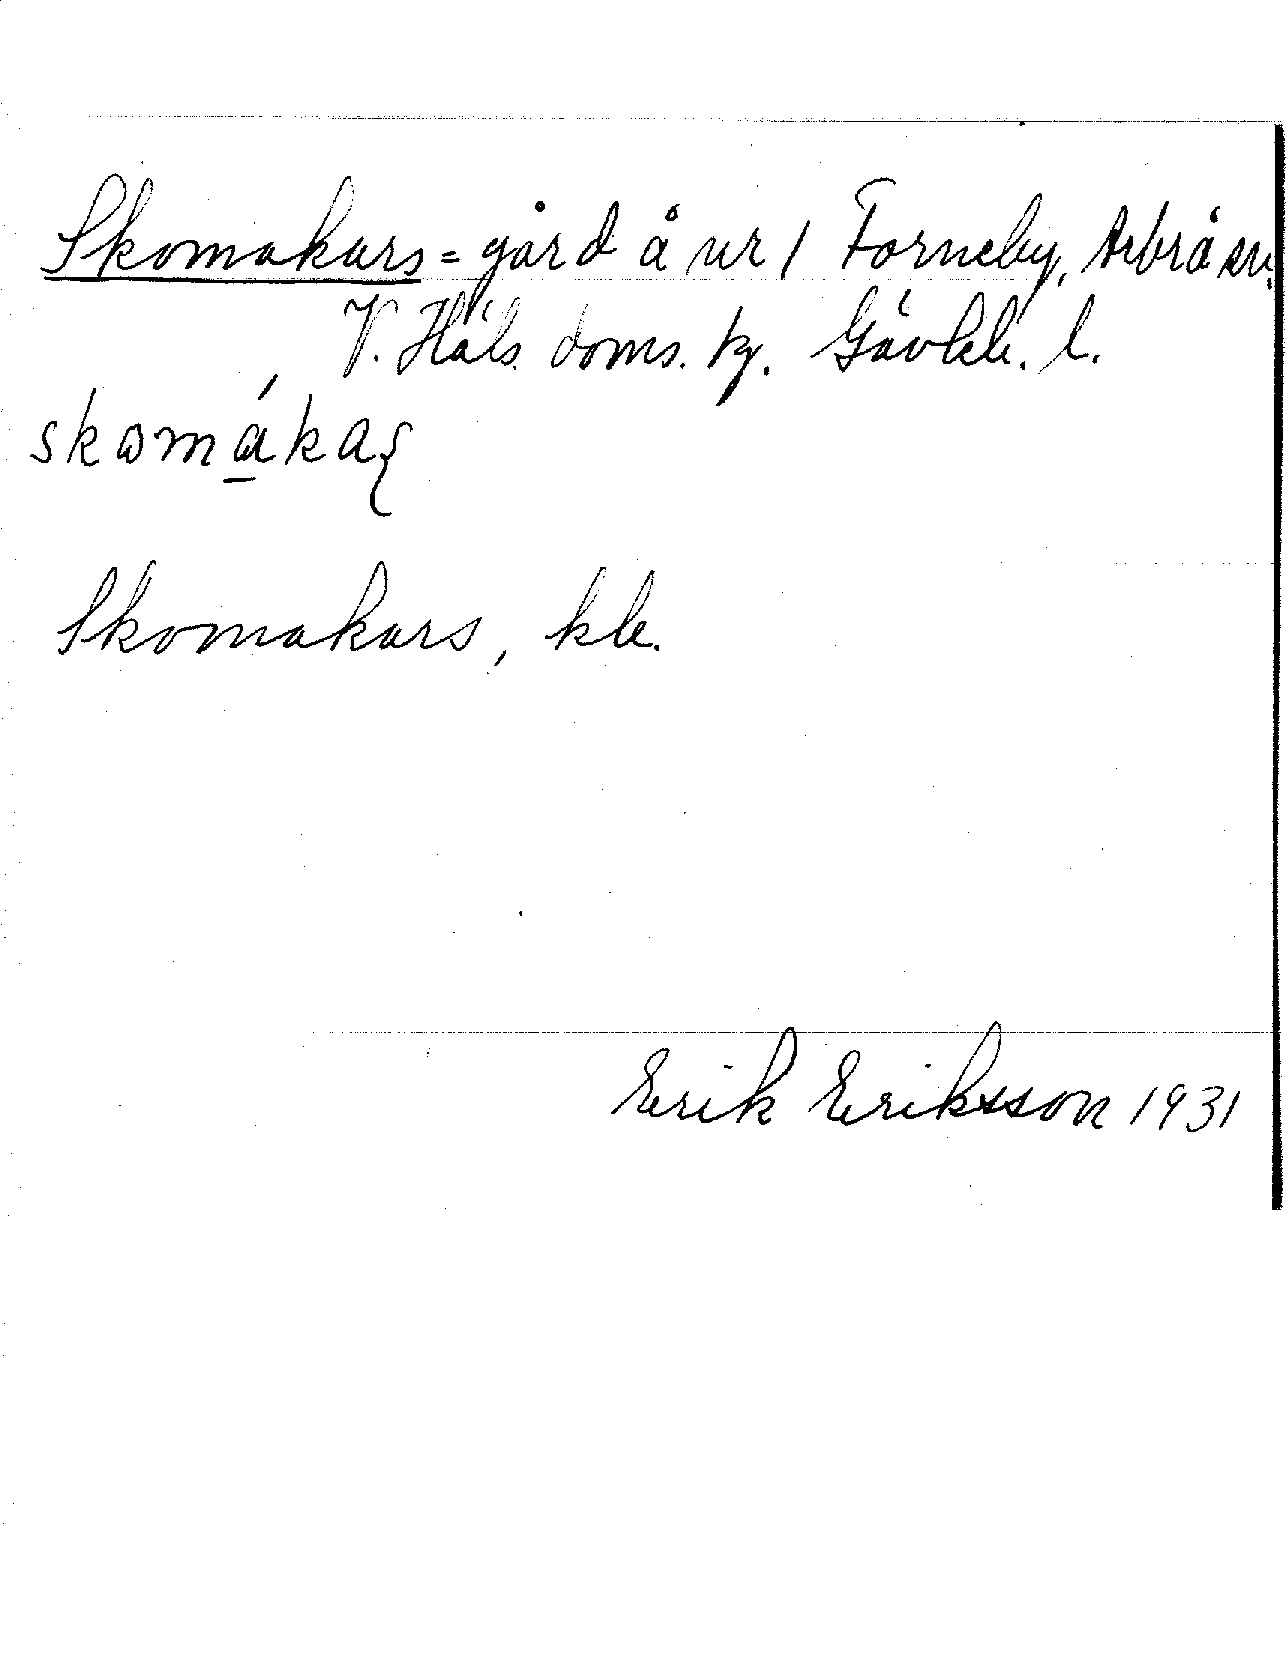 Skomakars = gård å nr 1 Forneby, Arbrå sn.
V. Häls. doms. hg. Gävleb. l.
skomákaʂ
Skomakars, kb.
Erik Eriksson 1931